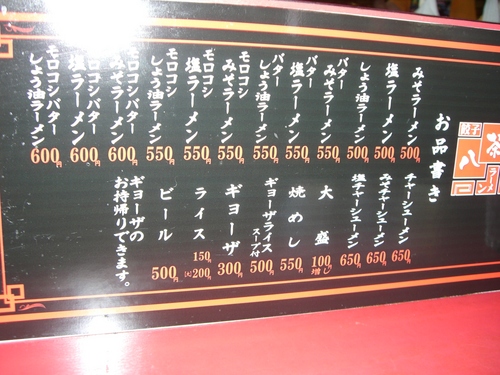 餃子
ラーメン
八
お品書き
みそラーメン 500円
塩ラーメン 500円
しょう油ラーメン 500円
バター
みそラーメン 550円
バター
塩ラーメン 550円
バター
しょう油ラーメン 550円
モロコシ
みそラーメン 550円
モロコシ
塩ラーメン 550円
モロコシ
しょう油ラーメン 550円
モロコシバター
みそラーメン 600円
モロコシバター
塩ラーメン 600円
モロコシバター
しょう油ラーメン 600円
チャーシューメン 650円
みそチャーシューメン 650円
塩チャーシューメン 650円
大盛 100円増し
焼めし 550円
ギョーザライス
スープ付 500円
ギョーザ 300円
ライス 150円
(大)200円
ビール 500円
ギョーザの
お持帰りできます。